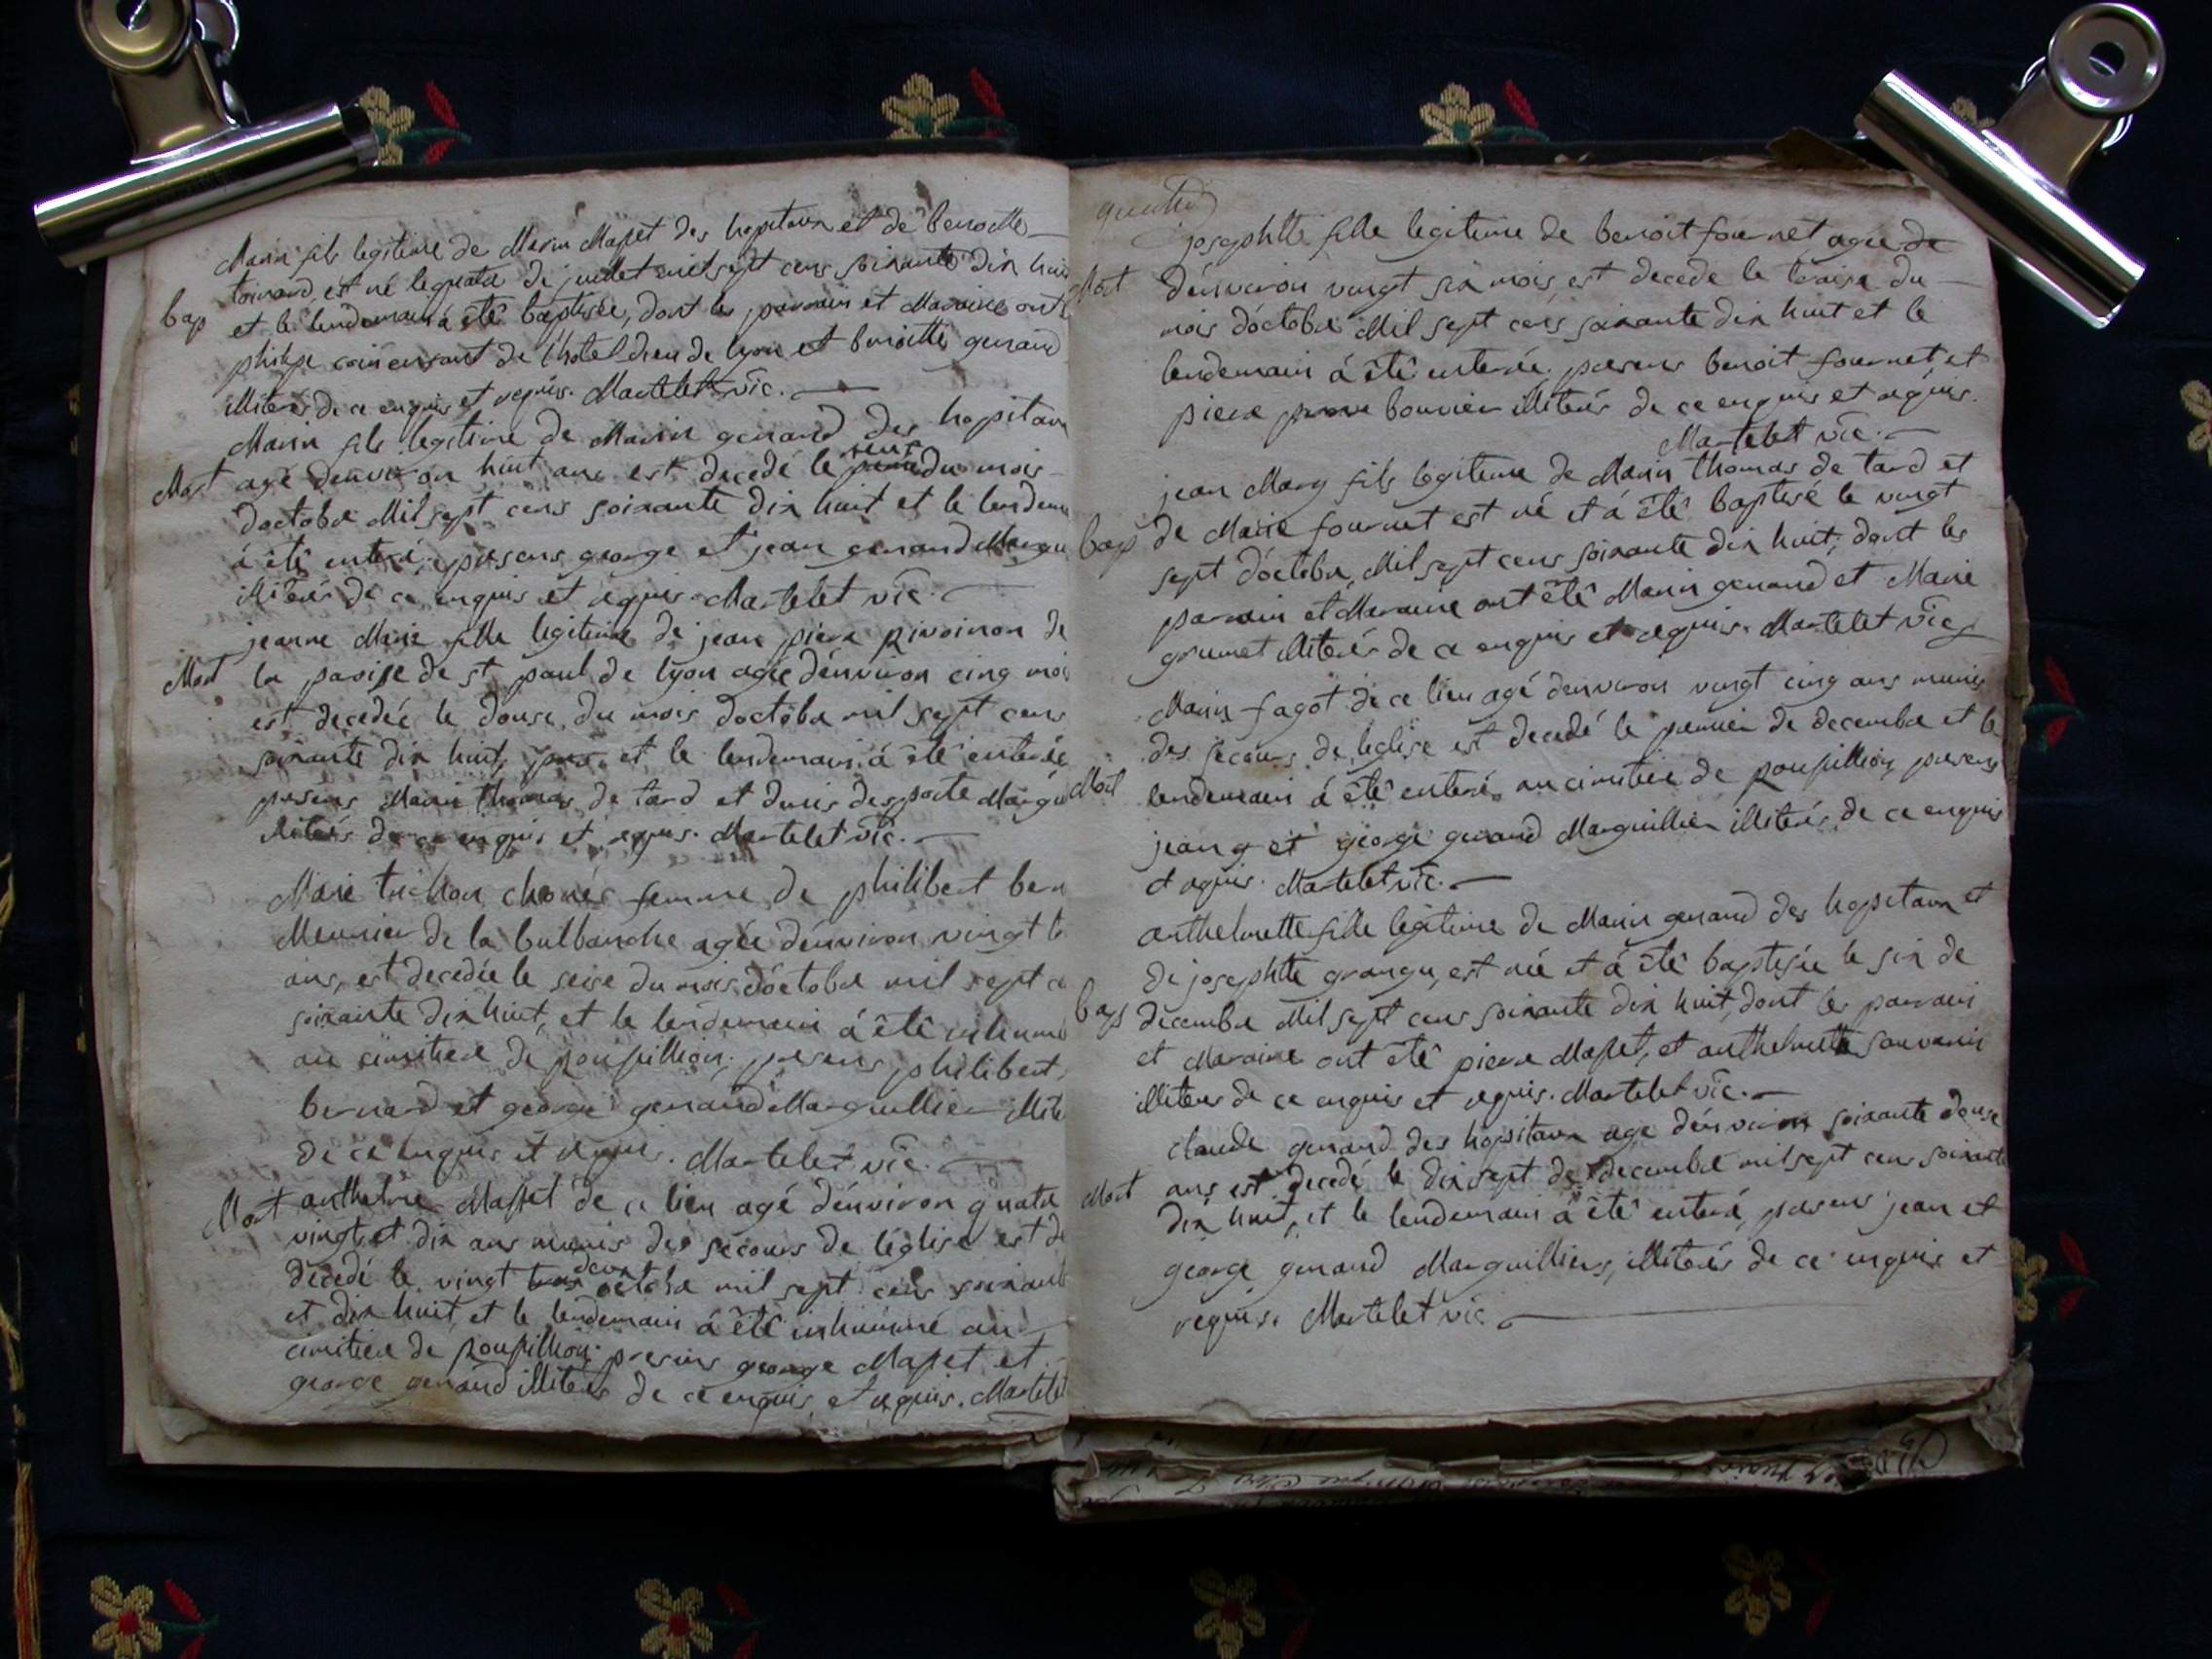 Marin fils legitime de Marin Maset des hopitaux et de benoitte
toinard, est né le quatre de juillet mil sept cens soixante dix huit
bap et le lendemain à êtê baptisée, dont les parrain et Maraine ont
philipe de l'hotel dieu de lyon et benoitte genand
illiterés de ce enquis et requis. Martelet vic.
Marin fils legitime de Marin genand des hopitaux
Mort agé denviron huit ans est decedé le du mois
doctobre Mil sept cens soixante dix huit et le lendem
à êtê enteré, presens george et jean genand Margu
illiterés de ce enquis et requis. Martelet vic.
jeanne Marie fille legitime de jean piere pivoinon de
Mort la paroisse de st paul de lyon agée dénviron cinq moi
est decedée le douse du mois doctobre mil sept cens
soixante dix huit, et le lendemain à êtê enterée
presens Marin thomas de tard et denis desporte Margu
illiterés de ce enquis et requis. Martelet vic.
Marie trichon femme de philibert ber
Meunier de la bulbanche agée dénviron vingt
ans, est decedée le seise du mois dóctobre mil sept c
soixante dix huit, et le lendemain à êtê inhumé
au cimitiere de poupillion; presens philibert
bernard et george genand Marguillier illite
de ce enquis et requis. Martelet vic.
Mort anthelme Maset de ce lieu agé dénviron quatre
vingt et dix ans munis des secours de léglise est de
decedé le vingt deux octobre mil sept cens soixant
et dix huit, et le lendemain à êtê inhummé au
cimitiere de poupillion; presens george Maset et
george genand illiterés de ce enquis, et requis. Martelet
josephtte fille legitime de benoit fournet agée de
Mort dénviron vingt six mois, est decede le traise du
mois dóctobre Mil sept cens soixante dix huit et le
lendemain à êtê enterée. presens benoit fournet, et
piere bouvier illiterés de ce enquis et requis.
Martelet vic.
jean Mary fils legitime de Marin thomas de tard et
bap de Marie fournet est né et à êtê baptisé le vingt
sept dóctobre, Mil sept cens soixante dix huit, dont les
parrain et Maraine ont êtê Marin genand et Marie
grumet illiterés de ce enquis et requis. Martelet vic
Marin fagot de ce lieu agé denviron vingt cinq ans munis
des secours de léglise est decedé le premier de decembre et le
Mort lendemain à êtê enteré au cimitiere de poupillion, presens
jean et george genand Marguillier illiterés de ce enquis
et requis. Martelet vic.
anthelmette fille legitime de Marin genand des hopitaux et
de josephtte est née et à êtê baptisée le six de
bap decembre Mil sept cens soixante dix huit, dont les parrain
et Maraine ont êtê piere Maset, et anthelmette souvanin
illiteres de ce enquis et requis. Martelet vic.
claude genand des hopitaux age dénviron soixante douse
Mort ans est decedé le dix sept de decembre mil sept cens soixante
dix huit, et le lendemain à êtê enteré, presens jean et
george genand Marguilliers, illiterés de ce enquis et
requis. Martelet vic.